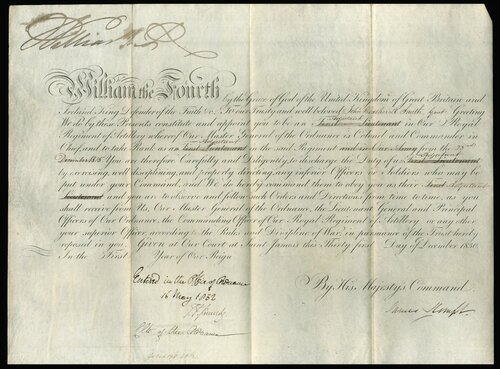 William R
William the Fourth by the Grace of God of the United Kingdom of Great Britain and
Ireland King, Defender of the Faith &c. To our Trusty and well beloved John Gent Greeting
We do by these Presents constitute and appoint you to be an Adjutant in Our Royal
Regiment of Artillery whereof Our Master General of the Ordnance is Colonel and Commander in
Chief, and to take Rank as an Adjutant in the said Regiment and in Our Army from the 22nd
December You are therefore Carefully and Diligently, to discharge the Duty of a Adjutant
by exercising, well disciplining, and properly directing, any inferior Officers or Soldiers who may be
put under your Command, and We do hereby command them to obey you as their Adjutant
Lieutenant and you are to observe and follow such Orders and Directions from time to time, as you
shall receive from Us, Our Master General of the Ordnance, the Lieutenant General and Principal
Officers of Our Ordnance, the Commanding Officer of Our Royal Regiment of Artillery, or any other
your superior Officer, according to the Rules and Discipline of War, in pursuance of the Trust hereby
reposed in you. Given at Our Court at Saint James's this Thirty first Day of December 1830.
In the First Year of Our Reign
By His Majesty's Command.
Entered in the Office of Ordnance
16 May 1832
James Kempt
Clk of the Ordnance